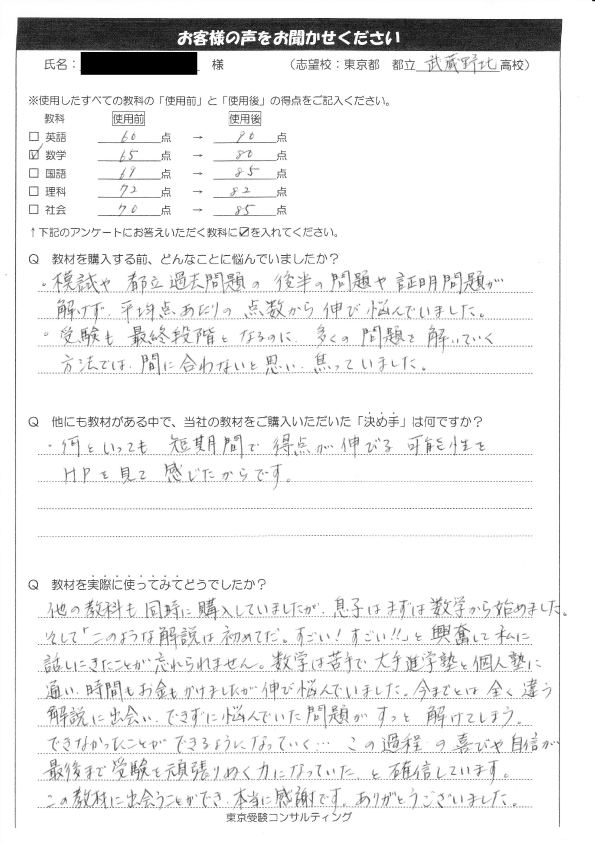 お客様の声をお聞かせください
氏名： 様 （志望校：東京都 都立 武蔵野北 高校）
※使用したすべての教科の「使用前」と「使用後」の得点をご記入ください。
教科 使用前 使用後
□ 英語 60 点 → 90 点
☑ 数学 65 点 → 80 点
□ 国語 69 点 → 85 点
□ 理科 72 点 → 82 点
□ 社会 70 点 → 85 点
↑下記のアンケートにお答えいただく教科に☑を入れてください。
Q 教材を購入する前、どんなことに悩んでいましたか？
・模試や 都立過去問題の 後半の問題や証明問題が
解けず、平均点あたりの 点数から 伸び悩んでいました。
・受験も 最終段階と なるのに、多くの 問題を 解いていく
方法では、間に合わないと思い、焦っていました。
Q 他にも教材がある中で、当社の教材をご購入いただいた「決め手」は何ですか？
・何といっても 短期間で 得点が 伸びる 可能性を
HPを見て 感じたからです。
Q 教材を実際に使ってみてどうでしたか？
他の教科も同時に購入していましたが、息子はまずは数学から始めました。
そして「このような解説は初めてだ。すごい！すごい!!」と興奮して私に
話しにきたことが忘れられません。数学は苦手で大手進学塾と個人塾に
通い、時間もお金もかけましたが伸び悩んでいました。今までとは全く違う
解説に出会い、できずに悩んでいた問題が すっと 解けてしまう。
できなかったことが できるようになっていく… この過程の喜びや自信が
最後まで受験を頑張りぬく力になっていた、と確信しています。
この教材に出会うことができ、本当に感謝です。ありがとうございました。
東京受験コンサルティング